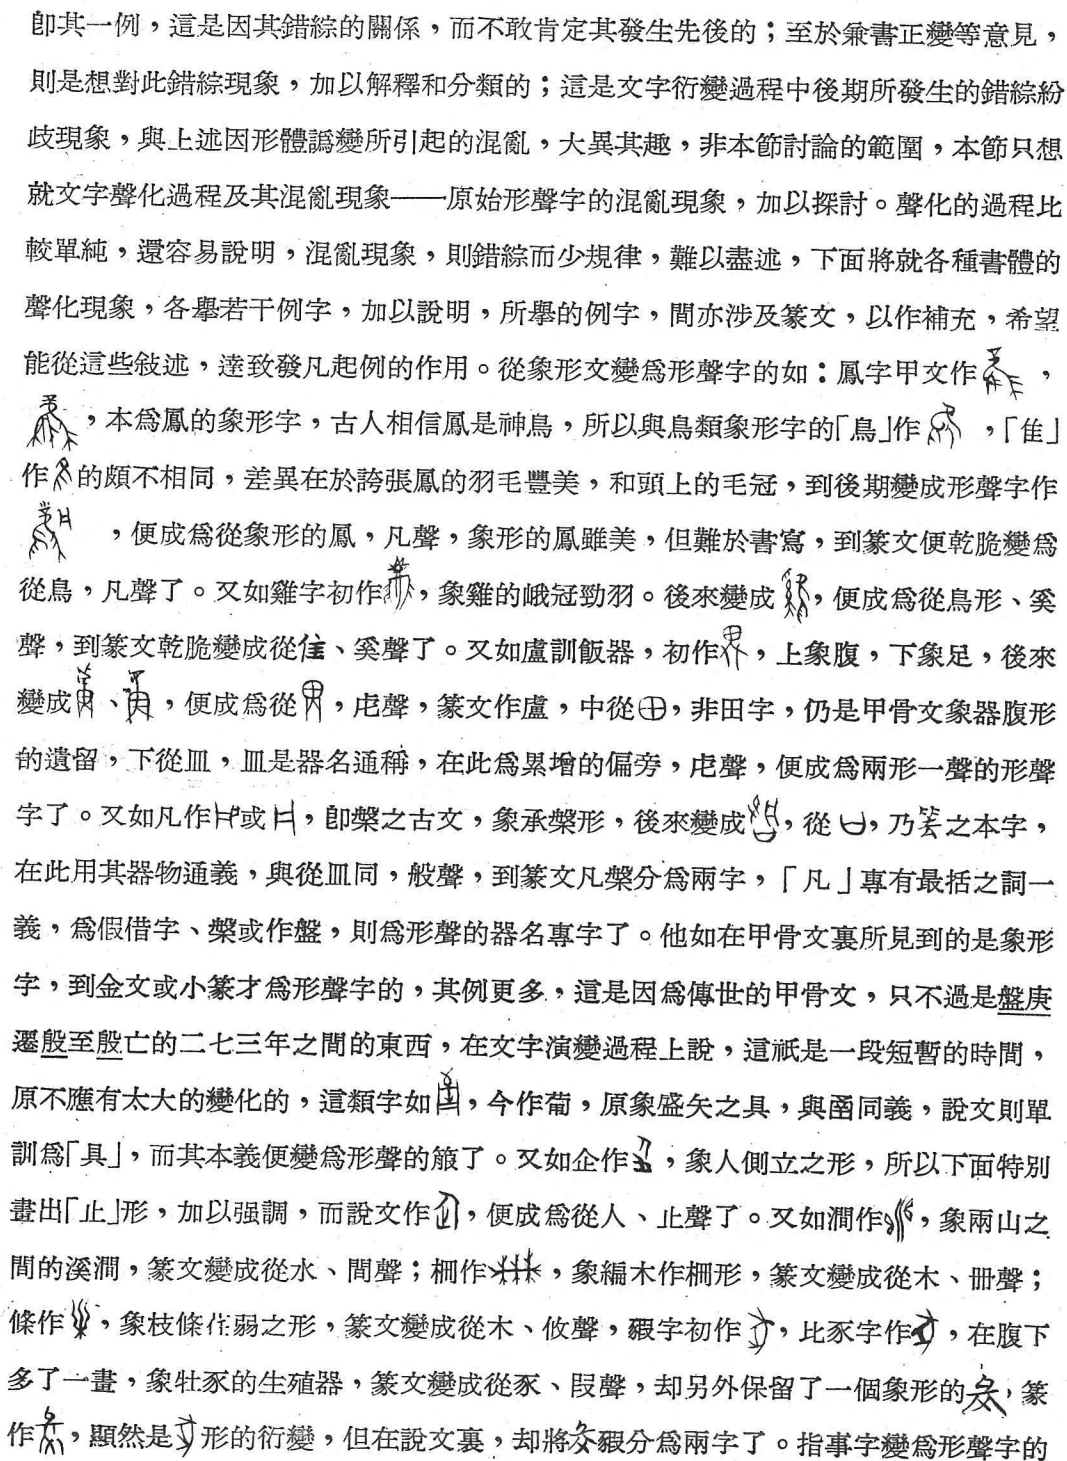 卽其一例，這是因其錯綜的關係，而不敢肯定其發生先後的；至於兼書正變等意見，
則是想對此錯綜現象，加以解釋和分類的；這是文字衍變過程中後期所發生的錯綜紛
歧現象，與上述因形體譌變所引起的混亂，大異其趣，非本節討論的範圍，本節只想
就文字聲化過程及其混亂現象——原始形聲字的混亂現象，加以探討。聲化的過程比
較單純，還容易說明，混亂現象，則錯綜而少規律，難以盡述，下面將就各種書體的
聲化現象，各舉若干例字，加以說明，所舉的例字，間亦涉及篆文，以作補充，希望
能從這些敍述，達致發凡起例的作用。從象形文變爲形聲字的如：鳳字甲文作，
，本爲鳳的象形字，古人相信鳳是神鳥，所以與鳥類象形字的「鳥」作，「隹」
作的頗不相同，差異在於誇張鳳的羽毛豐美，和頭上的毛冠，到後期變成形聲字作
，便成爲從象形的鳳，凡聲，象形的鳳雖美，但難於書寫，到篆文便乾脆變爲
從鳥，凡聲了。又如雞字初作，象雞的峨冠勁羽。後來變成，便成爲從鳥形、奚
聲，到篆文乾脆變成從隹、奚聲了。又如盧訓飯器，初作，上象腹，下象足，後來
變成、，便成爲從，虍聲，篆文作盧，中從，非田字，仍是甲骨文象器腹形
的遺留，下從皿，皿是器名通稱，在此爲累增的偏旁，虍聲，便成爲兩形一聲的形聲
字了。又如凡作或，卽槃之古文，象承槃形，後來變成，從凵，乃筶之本字，
在此用其器物通義，與從皿同，般聲，到篆文凡槃分爲兩字，「凡」專有最括之詞一
義，爲假借字、槃或作盤，則爲形聲的器名專字了。他如在甲骨文裏所見到的是象形
字，到金文或小篆才爲形聲字的，其例更多，這是因爲傳世的甲骨文，只不過是盤庚
遷殷至殷亡的二七三年之間的東西，在文字演變過程上說，這祇是一段短暫的時間，
原不應有太大的變化的，這類字如，今作葡，原象盛矢之具，與函同義，說文則單
訓爲「具」，而其本義便變爲形聲的箙了。又如企作，象人側立之形，所以下面特別
畫出「止」形，加以强調，而說文作，便成爲從人、止聲了。又如澗作，象兩山之
間的溪澗，篆文變成從水、間聲；柵作，象編木作柵形，篆文變成從木、册聲；
條作，象枝條弱之形，篆文變成從木、攸聲，豭字初作，比豕字作，在腹下
多了一畫，象牡豕的生殖器，篆文變成從豕、叚聲，却另外保留了一個象形的，篆
作，顯然是形的衍變，但在說文裏，却將豭分爲兩字了。指事字變爲形聲字的